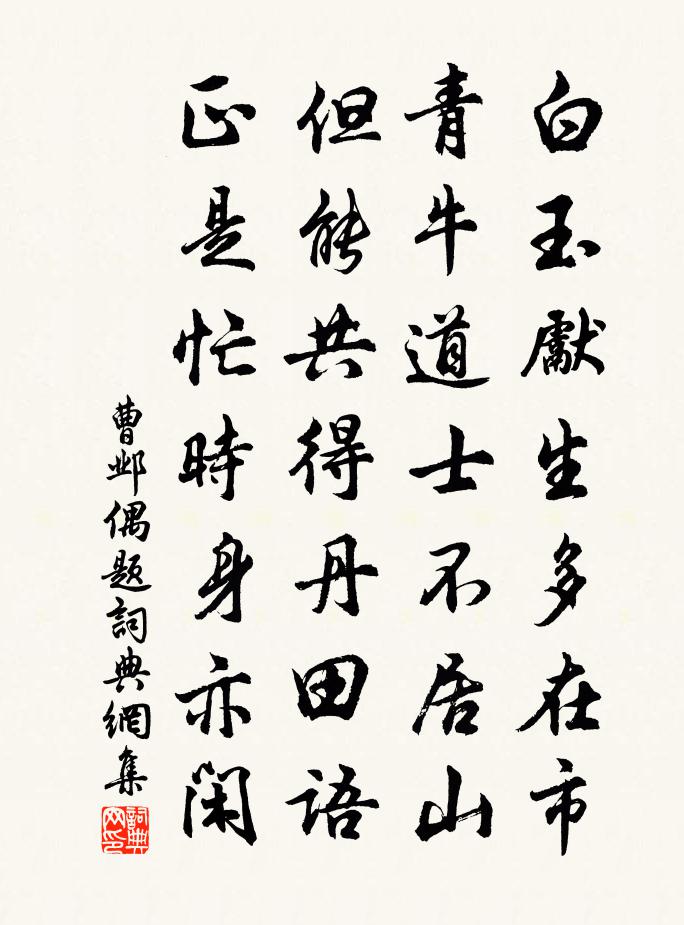 白玉獻生多在市
青牛道士不居山
但能共得丹田語
正是忙時身亦閑
曹邺偶题詞典網集
詞典
网印